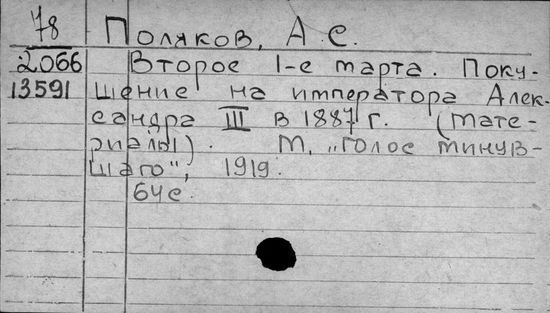 78 Поляков, А.С.
2066 Второе 1-е марта. Поку-
13591 шение на императора Алек-
сандра III в 1887 г. (Мате-
риалы). М, „Голос минув-
шаго", 1919.
64с.